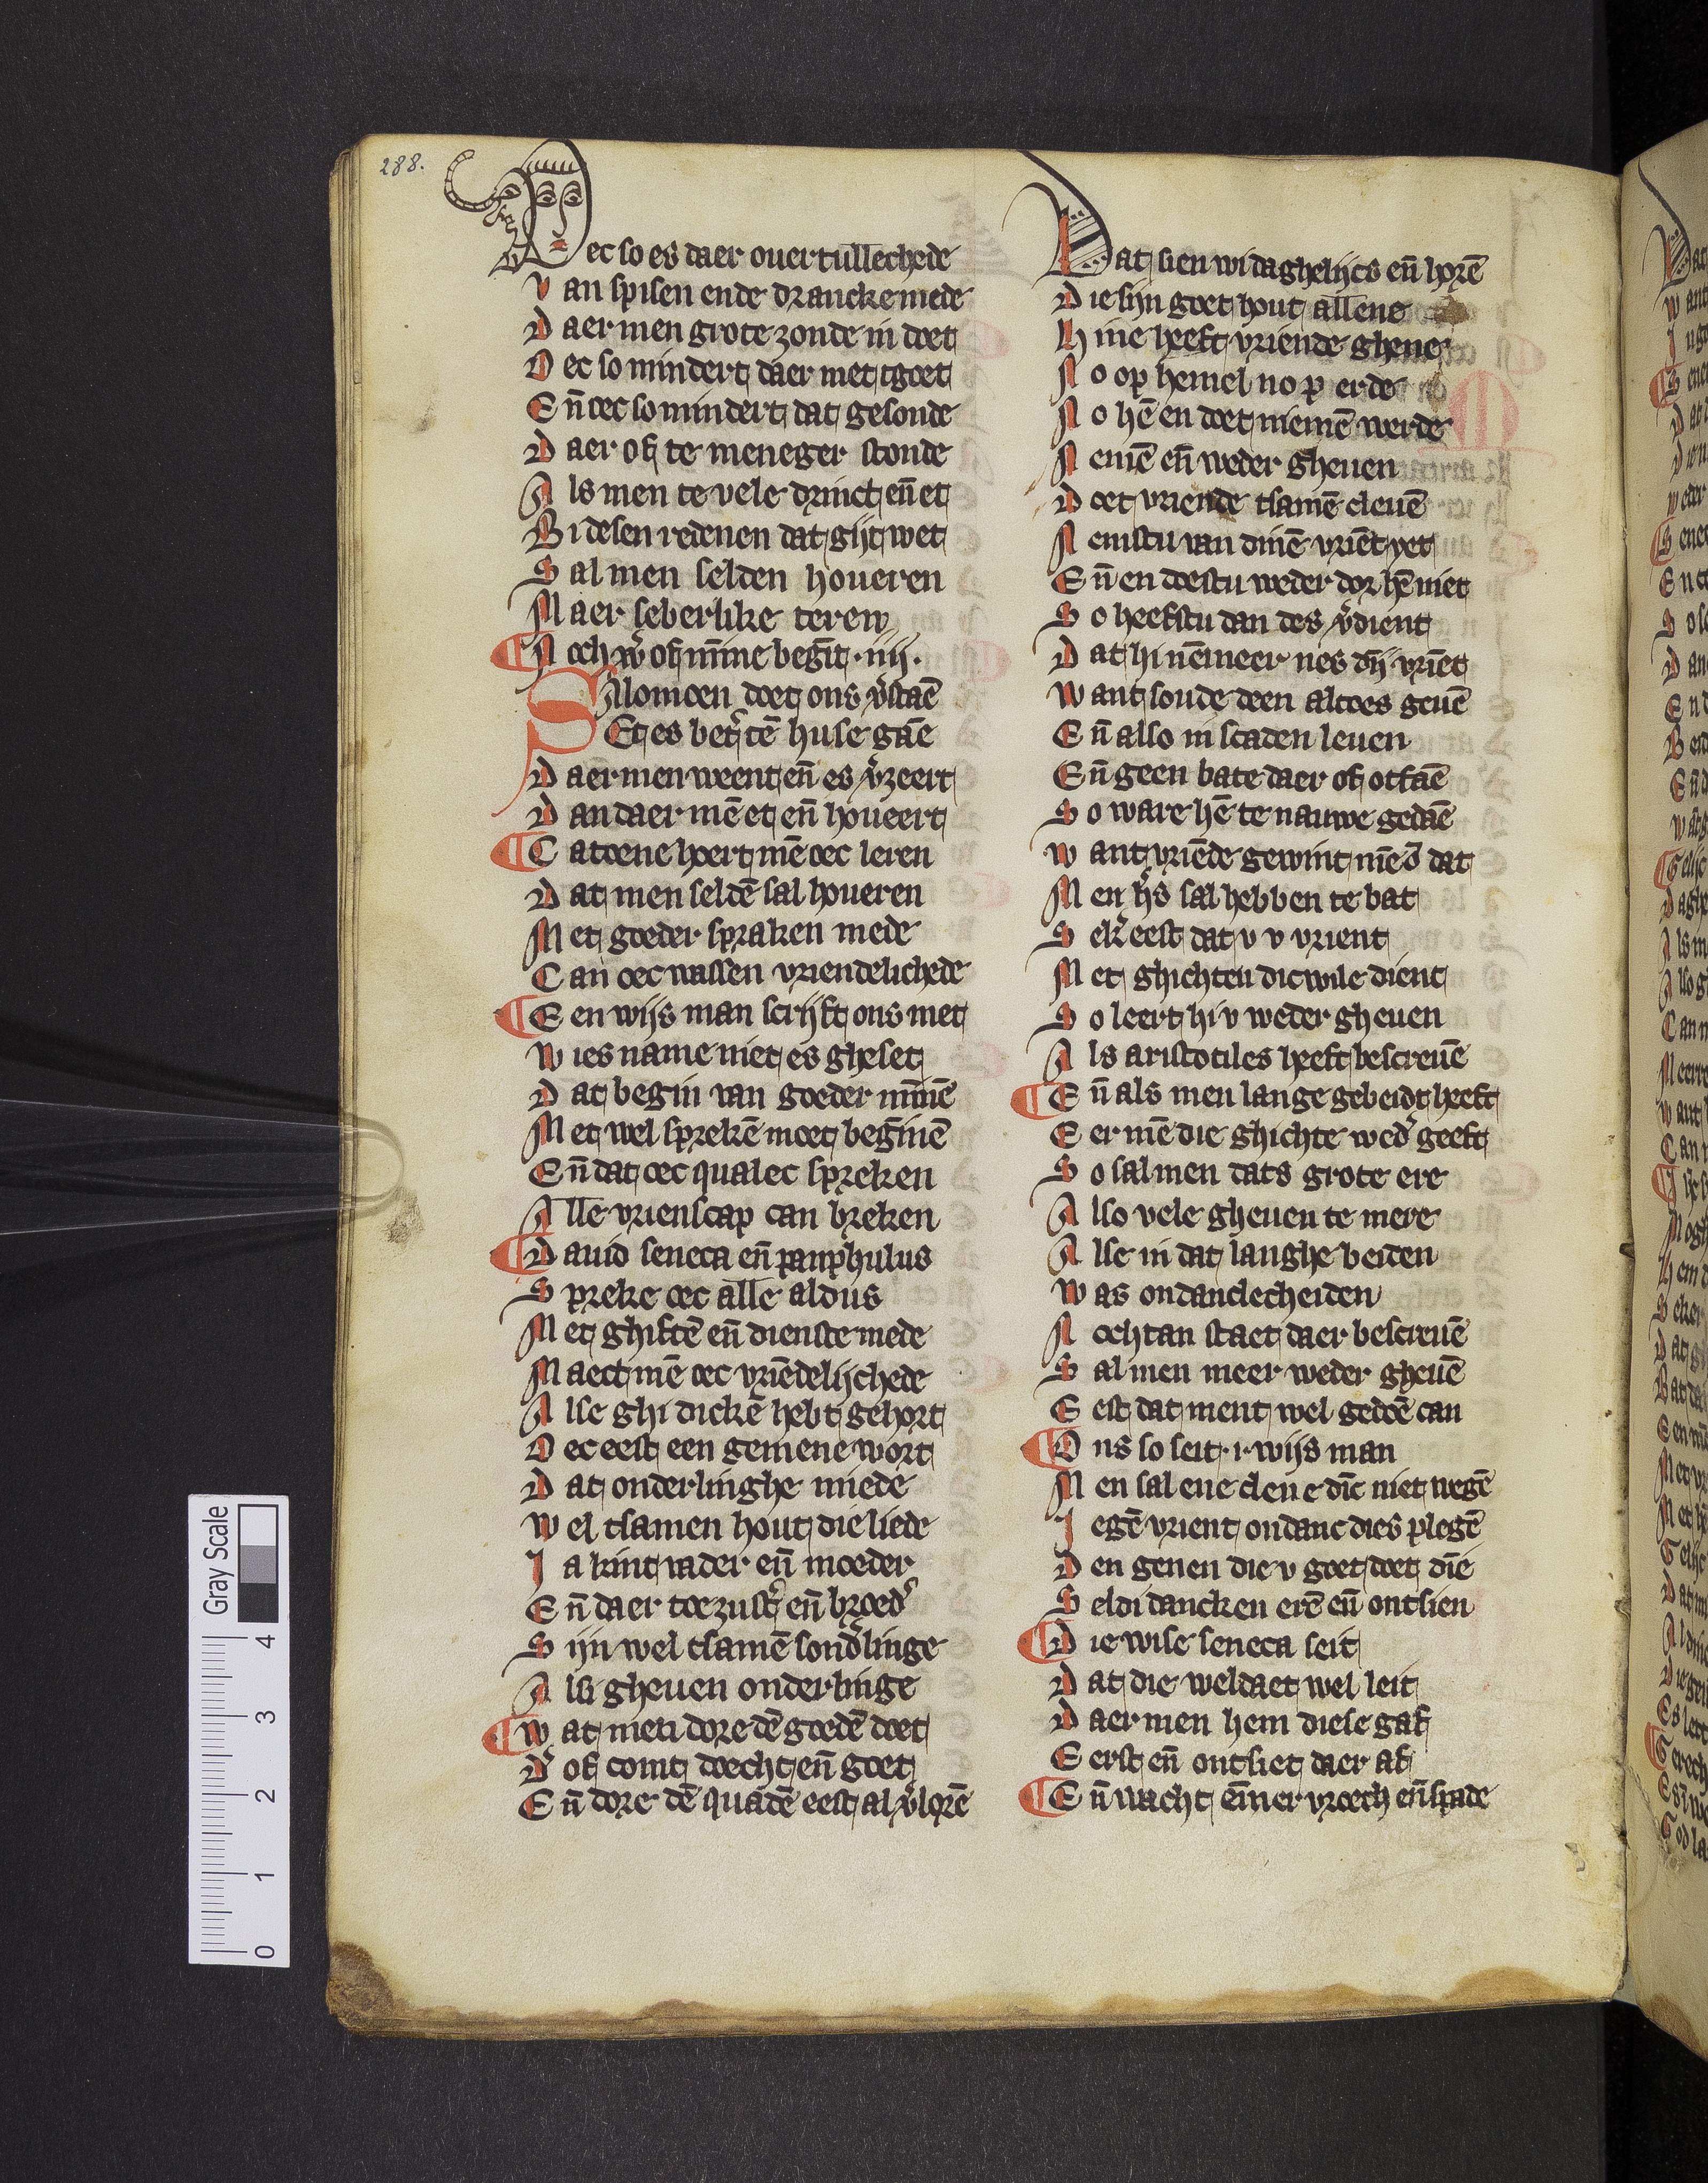 288.
Oec so es daer ouertullechede
Van spisen ende dranckemede
Daer men grote zonde in doet
Oec so mindert daer met tgoet
En̄ oec so mindert dat gesonde
Daer of te meneger stonde
Als men te vele drinct en̄ et
Bi desen redenen dat gijt wet
Sal men selden houeren
Maer seberlike teren
¶ Noch w of mīne begīt .iiij.
Salomoen doet ons v̾staē
Et es bet̾ tē huse gāē
Daer men weent en̄ es v̾zeert
Dan daer mē et en̄ houeert
¶ Catoene hoert mē oec leren
Dat men seldē sal houeren
Met goeder spraken mede
Can oec wassen vriendelichede
¶ Een wijs man scrijft ons met
Wies name niet es gheset
Dat begin van goeder mīnē
Met wel sprekē moet begīnē
En̄ dat oec qualec spreken
Alle vrienscap can breken
¶ Dauid seneca en̄ pamphulus
Spreke oec alle aldus
Met ghiftē en̄ dienste mede
Maect mē oec vriēdelijchede
Alse ghi dickē hebt gehort
Oec eest een gemene wort
Dat onderlinghe miede
Wel tsamen hout die liede
Ja kint vader en̄ moeder
En̄ daer toe zust̾ en̄ broed̾
Sijn wel tsamē sond̾linge
Als gheuen onderlinge
¶ Wat men dore dē goedē doet
D̾ of comt doecht en̄ goet
En̄ dore dē quadē eest al v̾lorē
Dat sien wi daghelijcs en̄ horē
Die sijn goet hout allene
Hine heeft vriende ghene
No op hemel no p erde
No hē en doet niemē werde
Nemē en̄ weder gheuen
Doet vriende tsamē cleuē
Nemstu van dinē vriēt yet
En̄ en doestu weder dor hē niet
So heefstu dan des v̾dient
Dat hi nēmeer nes dīj vriēt
Want soude deen altoes geuē
En̄ also in scaden leuen
En̄ geen bate daer of otfaē
So ware hē te nauwe gedaē
Want vriēde gewint mē ō dat
Men h̾s sal hebben te bat
Sek̾ eest dat v v vrient
Met ghichten dicwile dient
So leert hi v weder gheuen
Als aristotiles heeft bescreuē
¶ En̄ als men lange gebeidt heeft
Eer mē die ghichte wed̾ geeft
So sal men dats grote ere
Also vele gheuen te mere
Alse in dat langhe beiden
Was ondanclecheiden
Nochtan staet daer bescreuē
Sal men meer weder gheuē
Eest dat ment wel gedoē can
¶ Ons so seit .i. wijs man
Men sal ene clene dīc niet wegē
Jegē vrient ondanc dies plegē
Den genen die v goet doet dīe
Seldi dancken erē en̄ ontsien
¶ Die wise seneca seit
Dat die weldaet wel leit
Daer men hem diese gaf
Eerst en̄ ontsiet daer af
¶ En̄ wacht ēmer vroech en̄ spade
Gray Scale
0 1 2 3 4